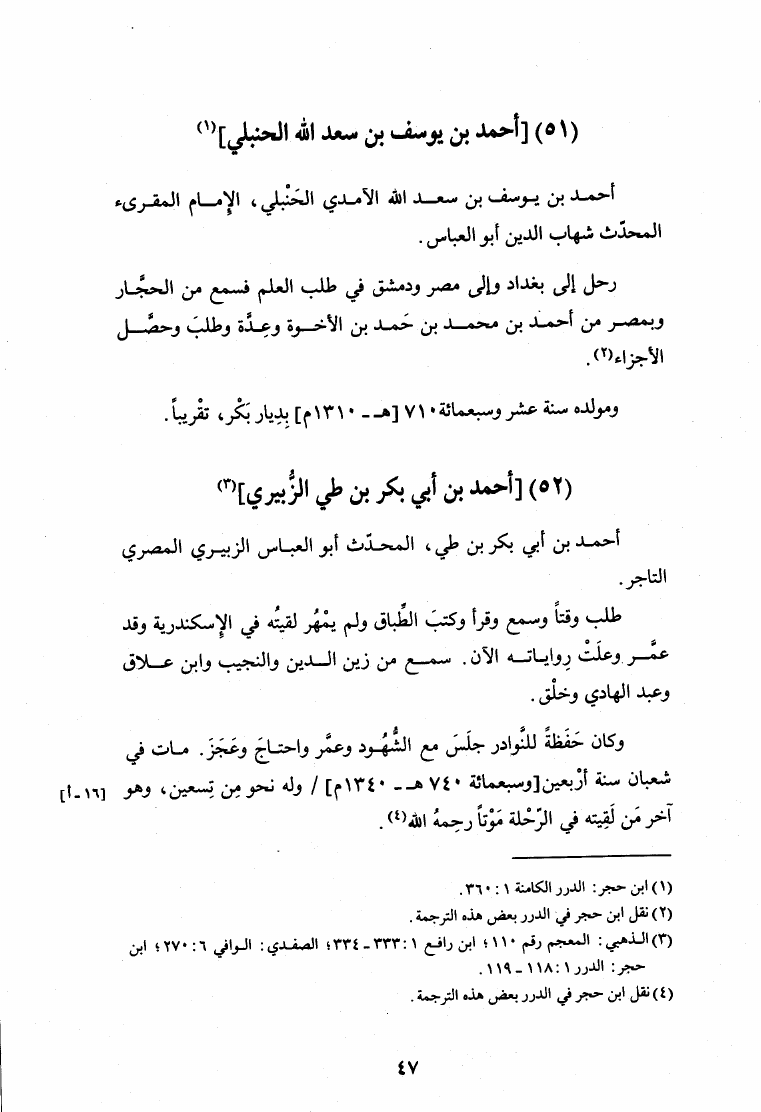 (٥١) [أحمد بن يوسف بن سعد الله الحنبلي](١)
أحمد بن يوسف بن سعد الله الآمدي الحَنْبلي، الإمام المقرىء
المحدّث شهاب الدين أبو العباس.
رحل إلى بغداد وإلى مصر ودمشق في طلب العلم فسمع من الحجَّار
وبمصر من أحمد بن محمد بن حَمد بن الأخوة وعِدَّة وطلبَ وحصَّل
الأجزاء(٢).
ومولده سنة عشر وسبعمائة ٧١٠ [هـ ـ ١٣١٠م] بِدِيار بَكْر، تقْريباً.
(٥٢) [أحمد بن أبي بكر بن طي الزُّبيري](٣)
أحمد بن أبي بكر بن طي، المحدّث أبو العباس الزبيري المصري
التاجر.
طلب وقتاً وسمع وقرأ وكتبَ الطِّباق ولم يمْهُر لقيتُه في الإسكندرية وقد
عمَّر وعلَتْ رِواياته الآن. سمع من زين الدين والنجيب وابن علاق
وعبد الهادي وخلْق.
وكان حَفَظةً للنَّوادر جلَسَ مع الشُّهُود وعمَّر واحتاجَ وعَجَزَ. مات في
شعبان سنة أرْبعين [وسبعمائة ٧٤٠ هـ ـ ١٣٤٠م] / وله نحو مِن تِسعين، وهو [١٦ـأ]
آخر مَن لَقِيته في الرّحْلة مَوْتاً رحِمهُ الله(٤).
(١) ابن حجر: الدرر الكامنة ١: ٣٦٠.
(٢) نقل ابن حجر في الدرر بعض هذه الترجمة.
(٣) الذهبي: المعجم رقم ١١٠؛ ابن رافع ١: ٣٣٣ ـ ٣٣٤؛ الصفدي: الوافي ٦: ٢٧٠؛ ابن
حجر: الدرر ١: ١١٨ ـ ١١٩.
(٤) نقل ابن حجر في الدرر بعض هذه الترجمة.
٤٧